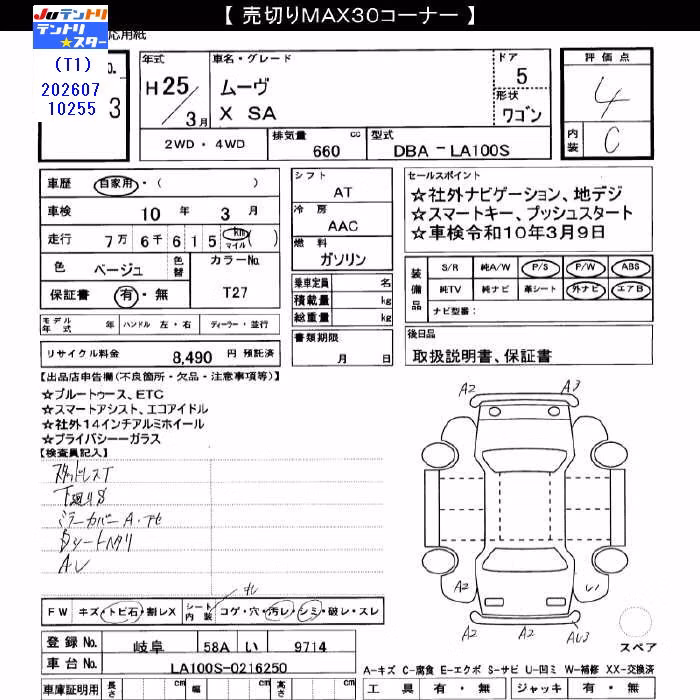 【 売切りMAX30コーナー 】
Juテントリ
テントリ★スター
応用紙
(T1)
202607
10255
No.
3
年式
H 25 / 3 月
車名・グレード
ムーヴ
X SA
ドア
5
形状
ワゴン
2WD ・ 4WD
排気量
660 cc
型式
DBA － LA100S
評価点
4
内装
C
車歴 自家用 ・ ( )
車検 10 年 3 月
走行 7万 6千 6 1 5 km マイル ( )
色 ベージュ 色替
カラーNo.
T27
保証書 有 ・ 無
モデル年式 年 ハンドル 左・右 ディーラー・並行
リサイクル料金 8,490 円 預託済
シフト
AT
冷房
AAC
燃料
ガソリン
乗車定員 名
積載量 kg
総重量 kg
書類期限
月 日
セールスポイント
☆社外ナビゲーション、地デジ
☆スマートキー、プッシュスタート
☆車検令和10年3月9日
装備品
S/R 純A/W P/S P/W ABS
純TV 純ナビ 革シート 外ナビ エアB
ナビ型番:
後日品
取扱説明書、保証書
【出品店申告欄(不良箇所・欠品・注意事項等)】
☆ブルートゥース、ETC
☆スマートアシスト、エコアイドル
☆社外14インチアルミホイール
☆プライバシーーガラス
【検査員記入】
スタッドレスT
下廻りS
ミラーカバー A・アセ
Dシートヘタリ
A2 A3
A2 A2 U1
A2 AU3
FW キズ・トビ石・割レX
シート内装 コゲ・穴・汚レ・シミ・破レ・スレ
登録No. 岐阜 58A い 9714
車台No. LA100S-0216250
車庫証明用 長さ cm 幅 cm 高さ cm
スペア
A-キズ C-腐食 E-エクボ S-サビ U-凹ミ W-補修 XX-交換済
工具 有・無 ジャッキ 有・無